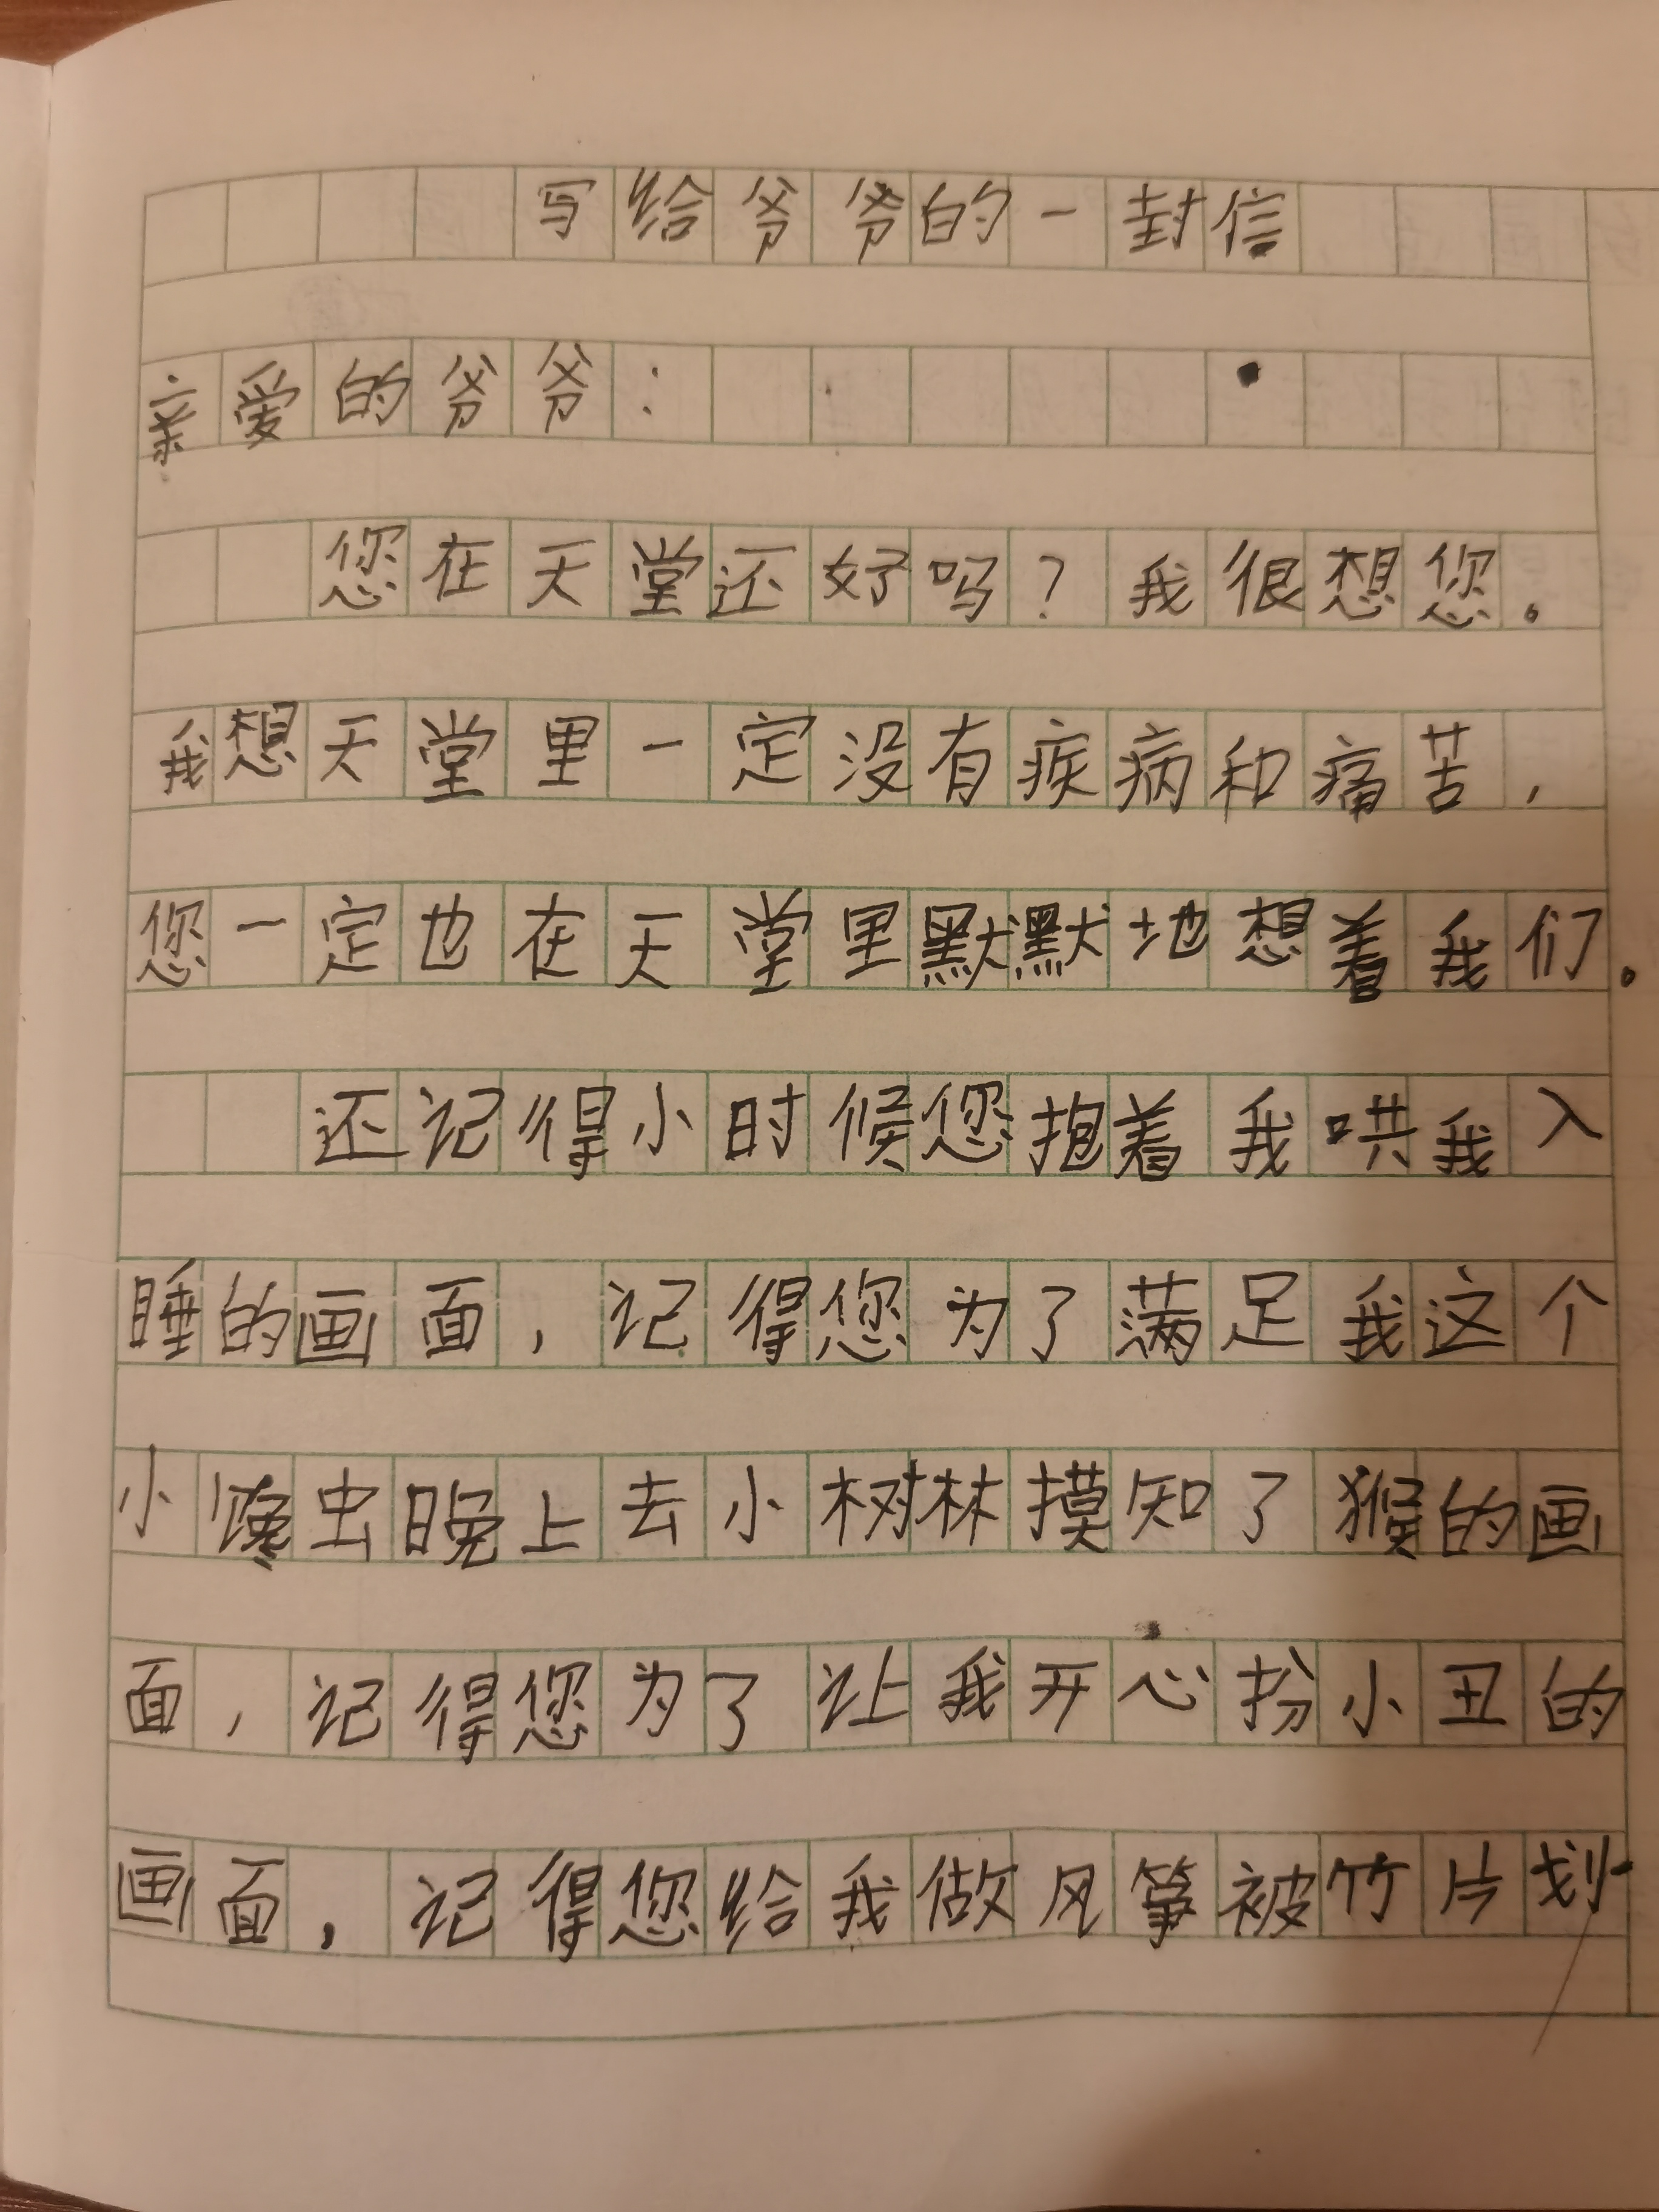 写给爷爷的一封信
亲爱的爷爷：
您在天堂还好吗？我很想您。
我想天堂里一定没有疾病和痛苦，
您一定也在天堂里默默地想着我们。
还记得小时候您抱着我哄我入
睡的画面，记得您为了满足我这个
小馋虫晚上去小树林摸知了猴的画
面，记得您为了让我开心扮小丑的
画面，记得您给我做风筝被竹片划